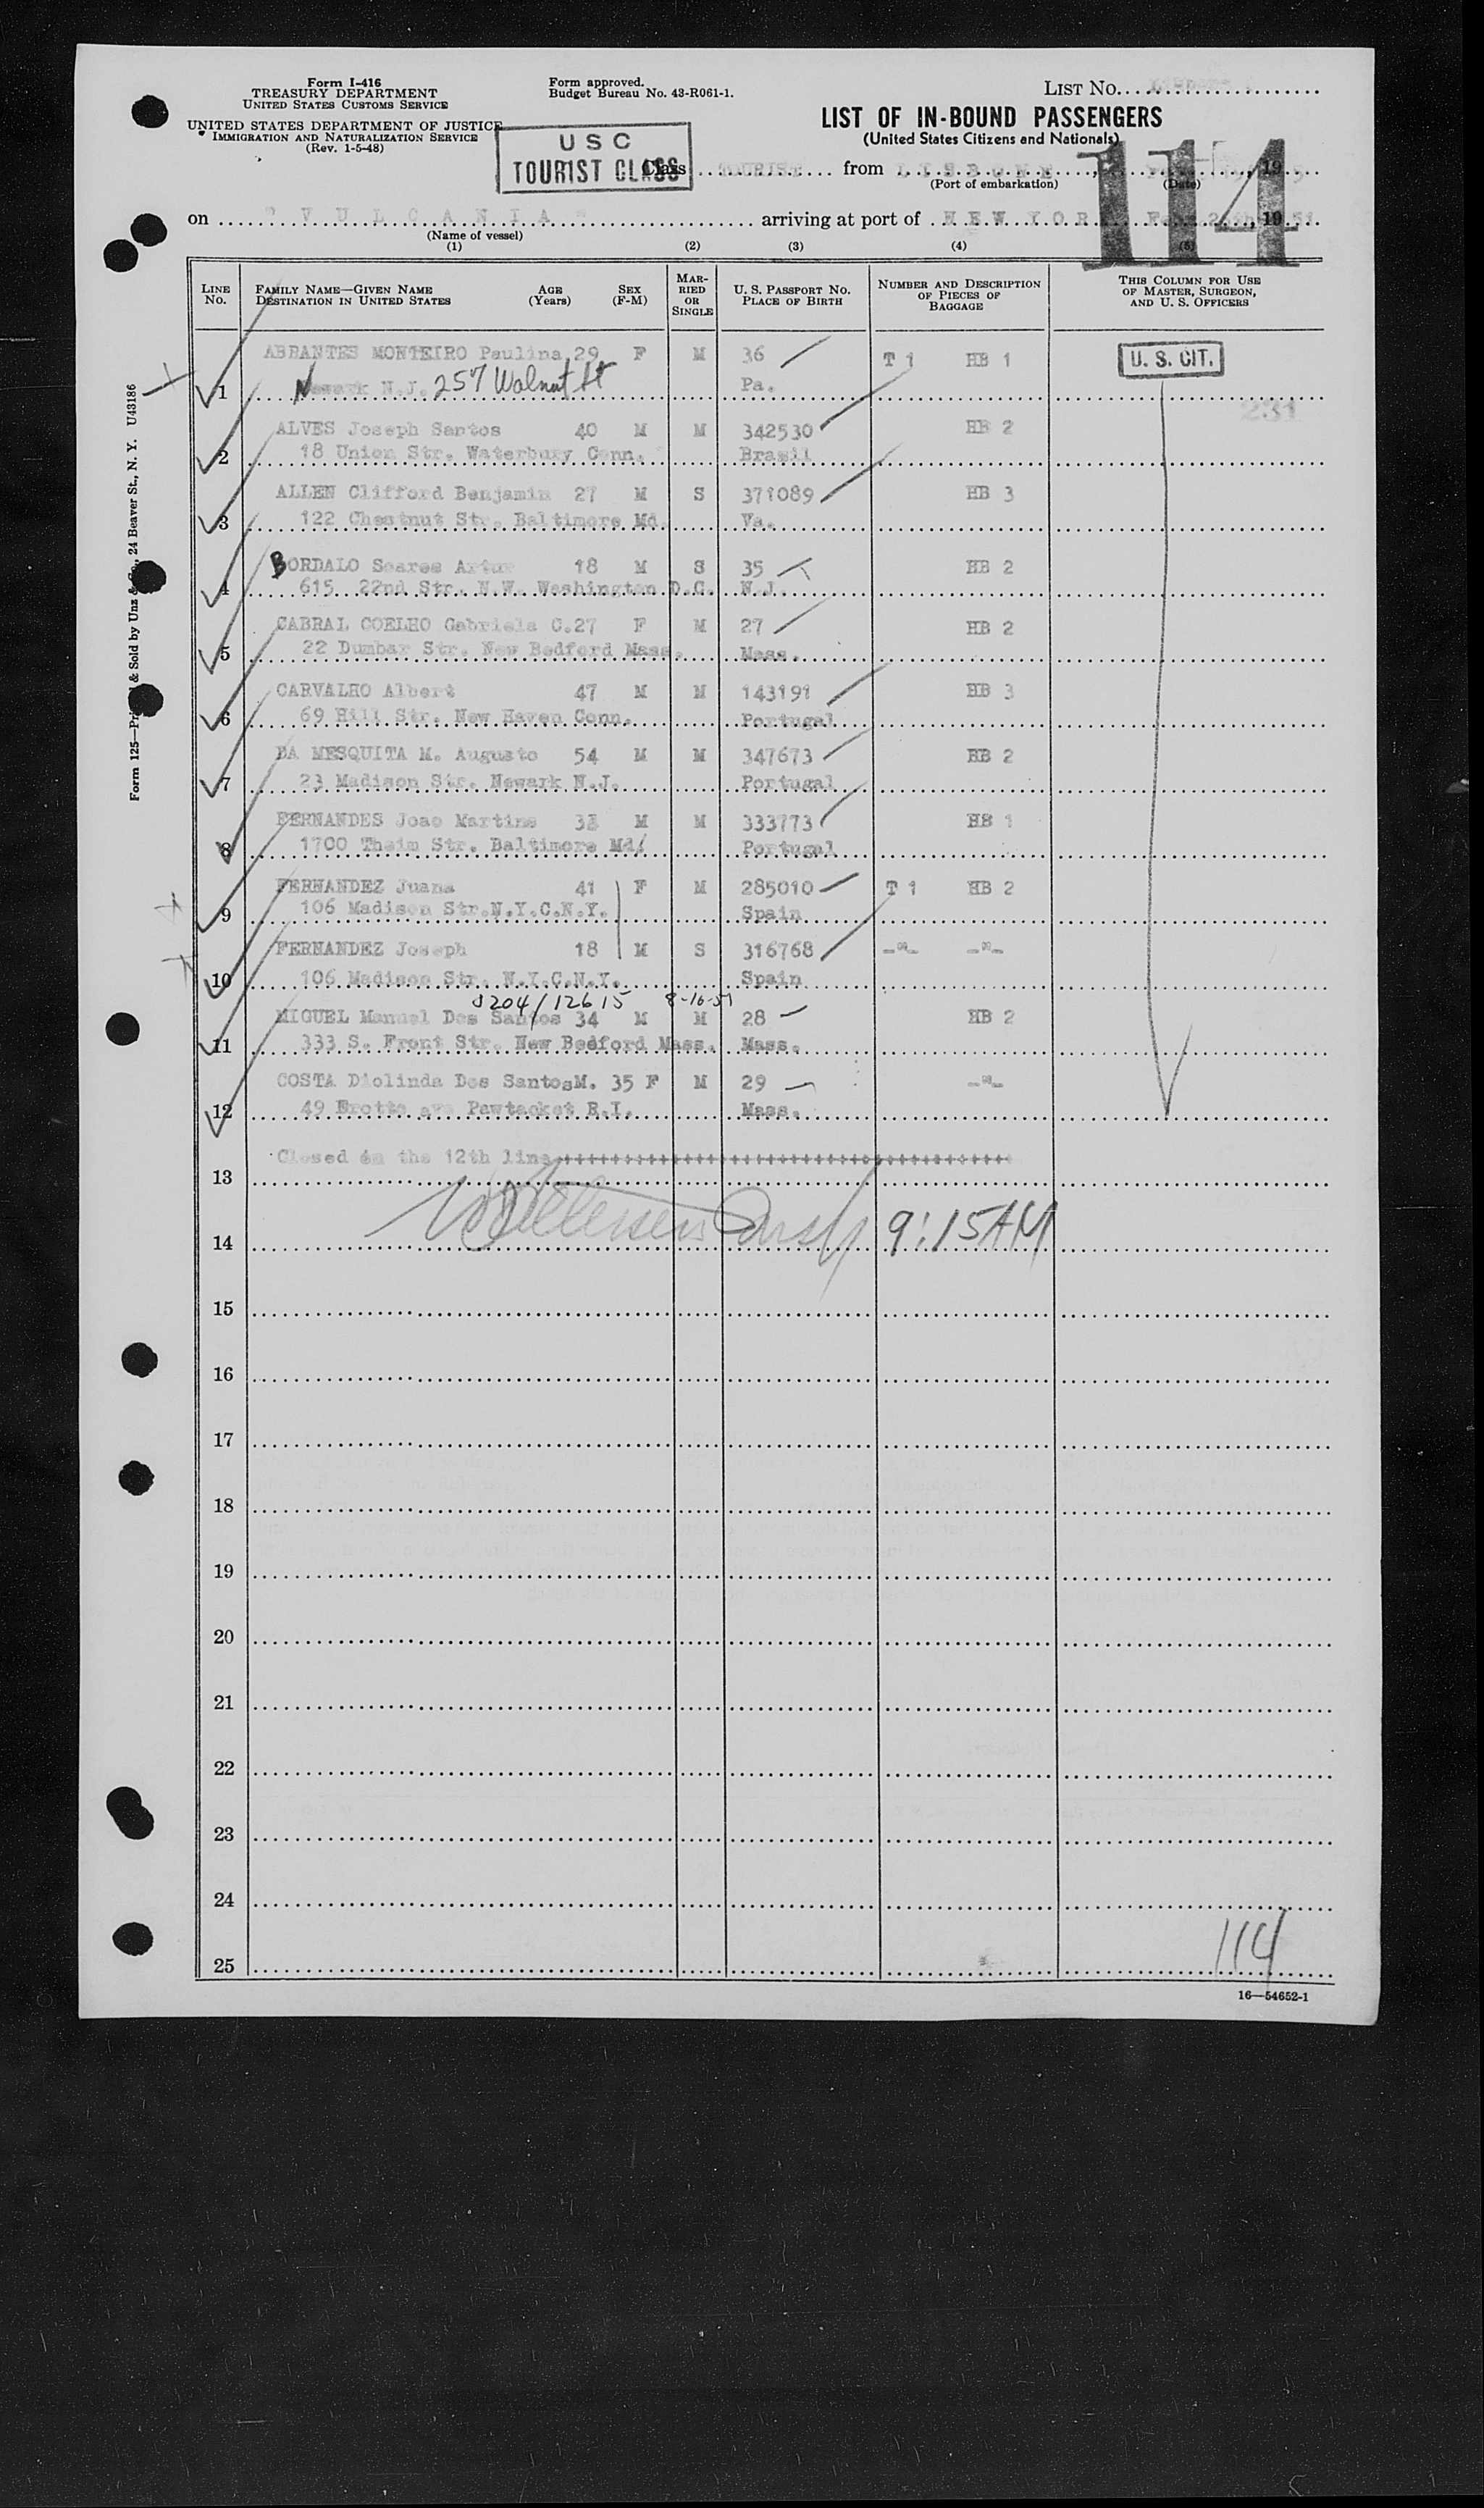 Form I-416
TREASURY DEPARTMENT
UNITED STATES CUSTOMS SERVICE
UNITED STATES DEPARTMENT OF JUSTICE
IMMIGRATION AND NATURALIZATION SERVICE
(Rev. 1-5-48)
Form approved.
Budget Bureau No. 43-R061-1.
LIST No.
LIST OF IN-BOUND PASSENGERS
(United States Citizens and Nationals)
USC
TOURIST CLASS
114
Class TOURIST from LISBONE, 19
(Port of embarkation) (Date)
on "VULCANIA" arriving at port of NEW YORK Feb. , 1951
(Name of vessel)
(1) (2) (3) (4) (5)
LINE No.
FAMILY NAME—GIVEN NAME AGE (Years) SEX (F-M)
DESTINATION IN UNITED STATES
MARRIED OR SINGLE
U. S. PASSPORT No.
PLACE OF BIRTH
NUMBER AND DESCRIPTION OF PIECES OF BAGGAGE
THIS COLUMN FOR USE OF MASTER, SURGEON, AND U. S. OFFICERS
ABRANTES MONTEIRO Paulina 29 F M 36 T 1 HB 1 U. S. CIT.
1 Newark N.J. 257 Walnut St Pa.
231
ALVES Joseph Santos 40 M M 342530 HB 2
2 18 Union Str. Waterbury Conn. Brazil
ALLEN Clifford Benjamin 27 M S 371089 HB 3
3 122 Chestnut Str. Baltimore Md. Va.
BORDALO Soares Artur 18 M S 35 HB 2
4 615 22nd Str. N.W. Washington D.C. N.J.
CABRAL COELHO Gabriela C. 27 F M 27 HB 2
5 22 Dumbar Str. New Bedford Mass. Mass.
CARVALHO Albert 47 M M 143191 HB 3
6 69 Hill Str. New Haven Conn. Portugal
DA MESQUITA M. Augusto 54 M M 347673 HB 2
7 23 Madison Str. Newark N.J. Portugal
FERNANDES Joao Martins M M 333773 HB 1
8 1700 Theim Str. Baltimore Md. Portugal
FERNANDEZ Juana 41 F M 285010 T 1 HB 2
9 106 Madison Str.N.Y.C.N.Y. Spain
FERNANDEZ Joseph 18 M S 316768 -"- -"-
10 106 Madison Str. N.Y.C.N.Y. Spain
0204/12615 8-16-51
MIGUEL Manuel Dos Santos 34 M M 28 HB 2
11 333 S. Front Str. New Bedford Mass. Mass.
COSTA Diolinda Dos SantosM. 35 F M 29 -"-
12 49 Pawtacket R.I. Mass.
Closed on the 12th line
13
14 9:15AM
15
16
17
18
19
20
21
22
23
24
25
114
16—54652-1
Form 125—Printed & Sold by Unz & Co., 24 Beaver St., N. Y. U43186